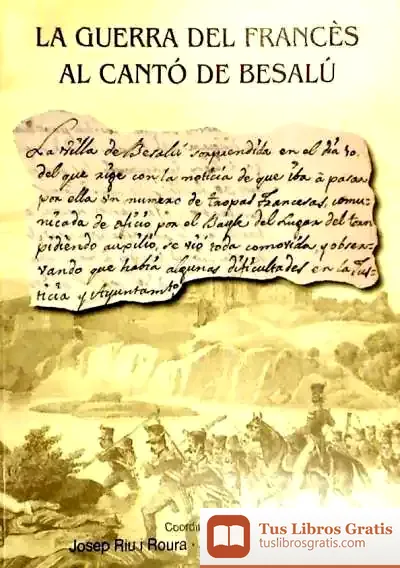 LA GUERRA DEL FRANCÈS
AL CANTÓ DE BESALÚ
La villa de Besalú sorprendida en el dia 10.
del que rige con la noticia de que iba à pasar
por ella un numero de tropas Francesas, comu-
nicada de oficio por el Bayle del Lugar del
pidiendo aupilio, se vió toda comovida y obser-
vando que habia algunas dificultades en la Jus-
ticia y Ayuntamto
Coordin
Josep Riu i Roura
Tus Libros Gratis
tuslibrosgratis.com